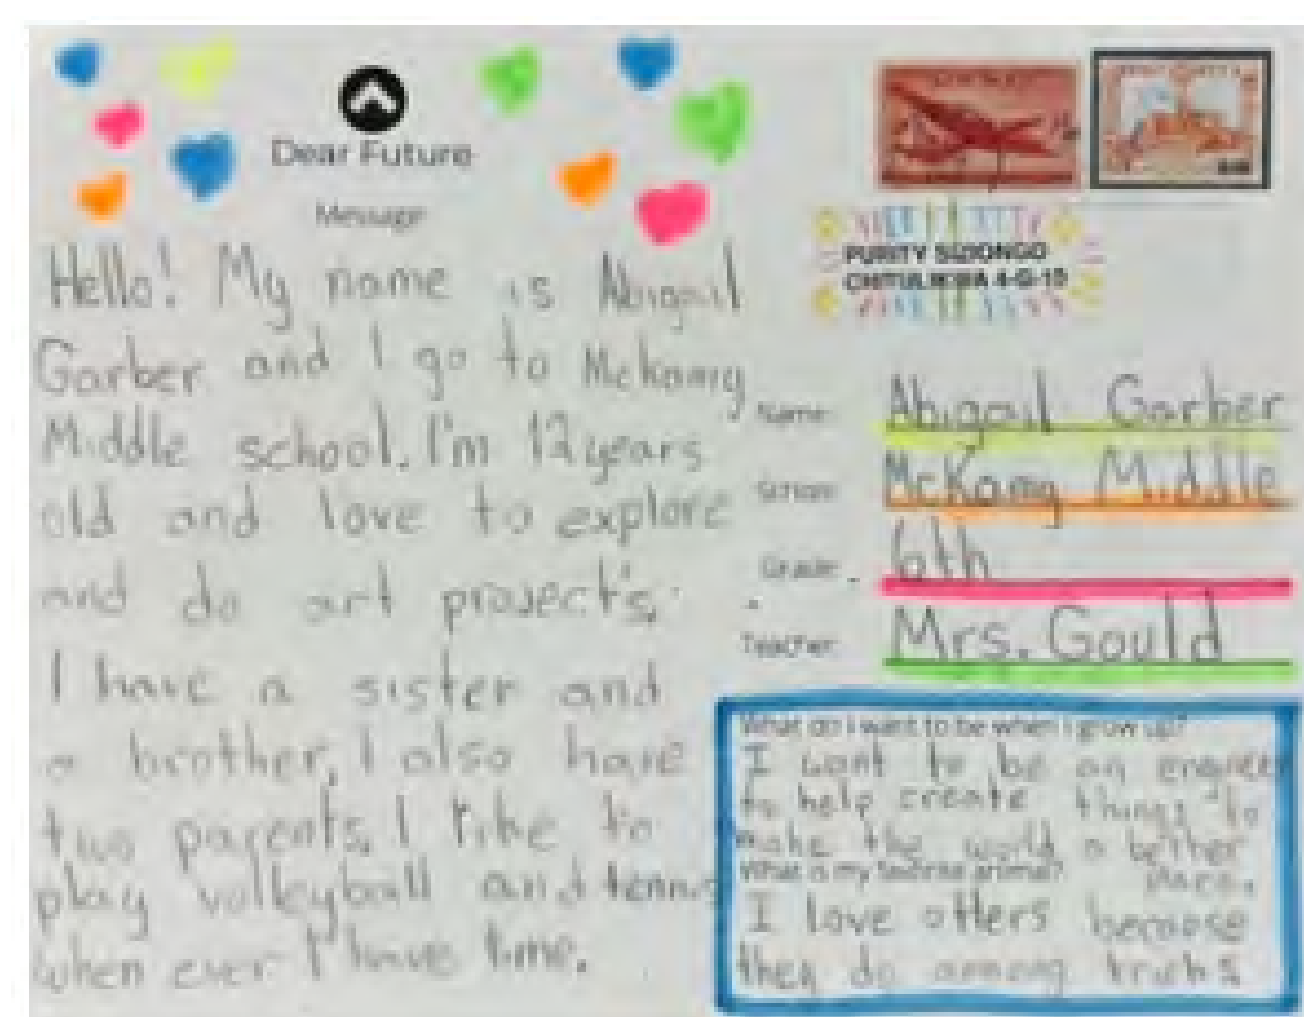 Dear Future
Message
Hello! My name is Abigail
Garber and I go to Mckamy
Middle school. I'm 12 years
old and love to explore
and do art project's.
I have a sister and
a brother, I also have
two parents. I like to
play volleyball and tennis
when ever I have time.
PURITY
4-G-15
Name: Abigail Garber
School: McKamy Middle
Grade: 6th
Teacher: Mrs. Gould
What do I want to be when I grow up?
I want to be an engineer
to help create things to
make the world a better
place.
What is my favorite animal?
I love otters because
they do amazing tricks